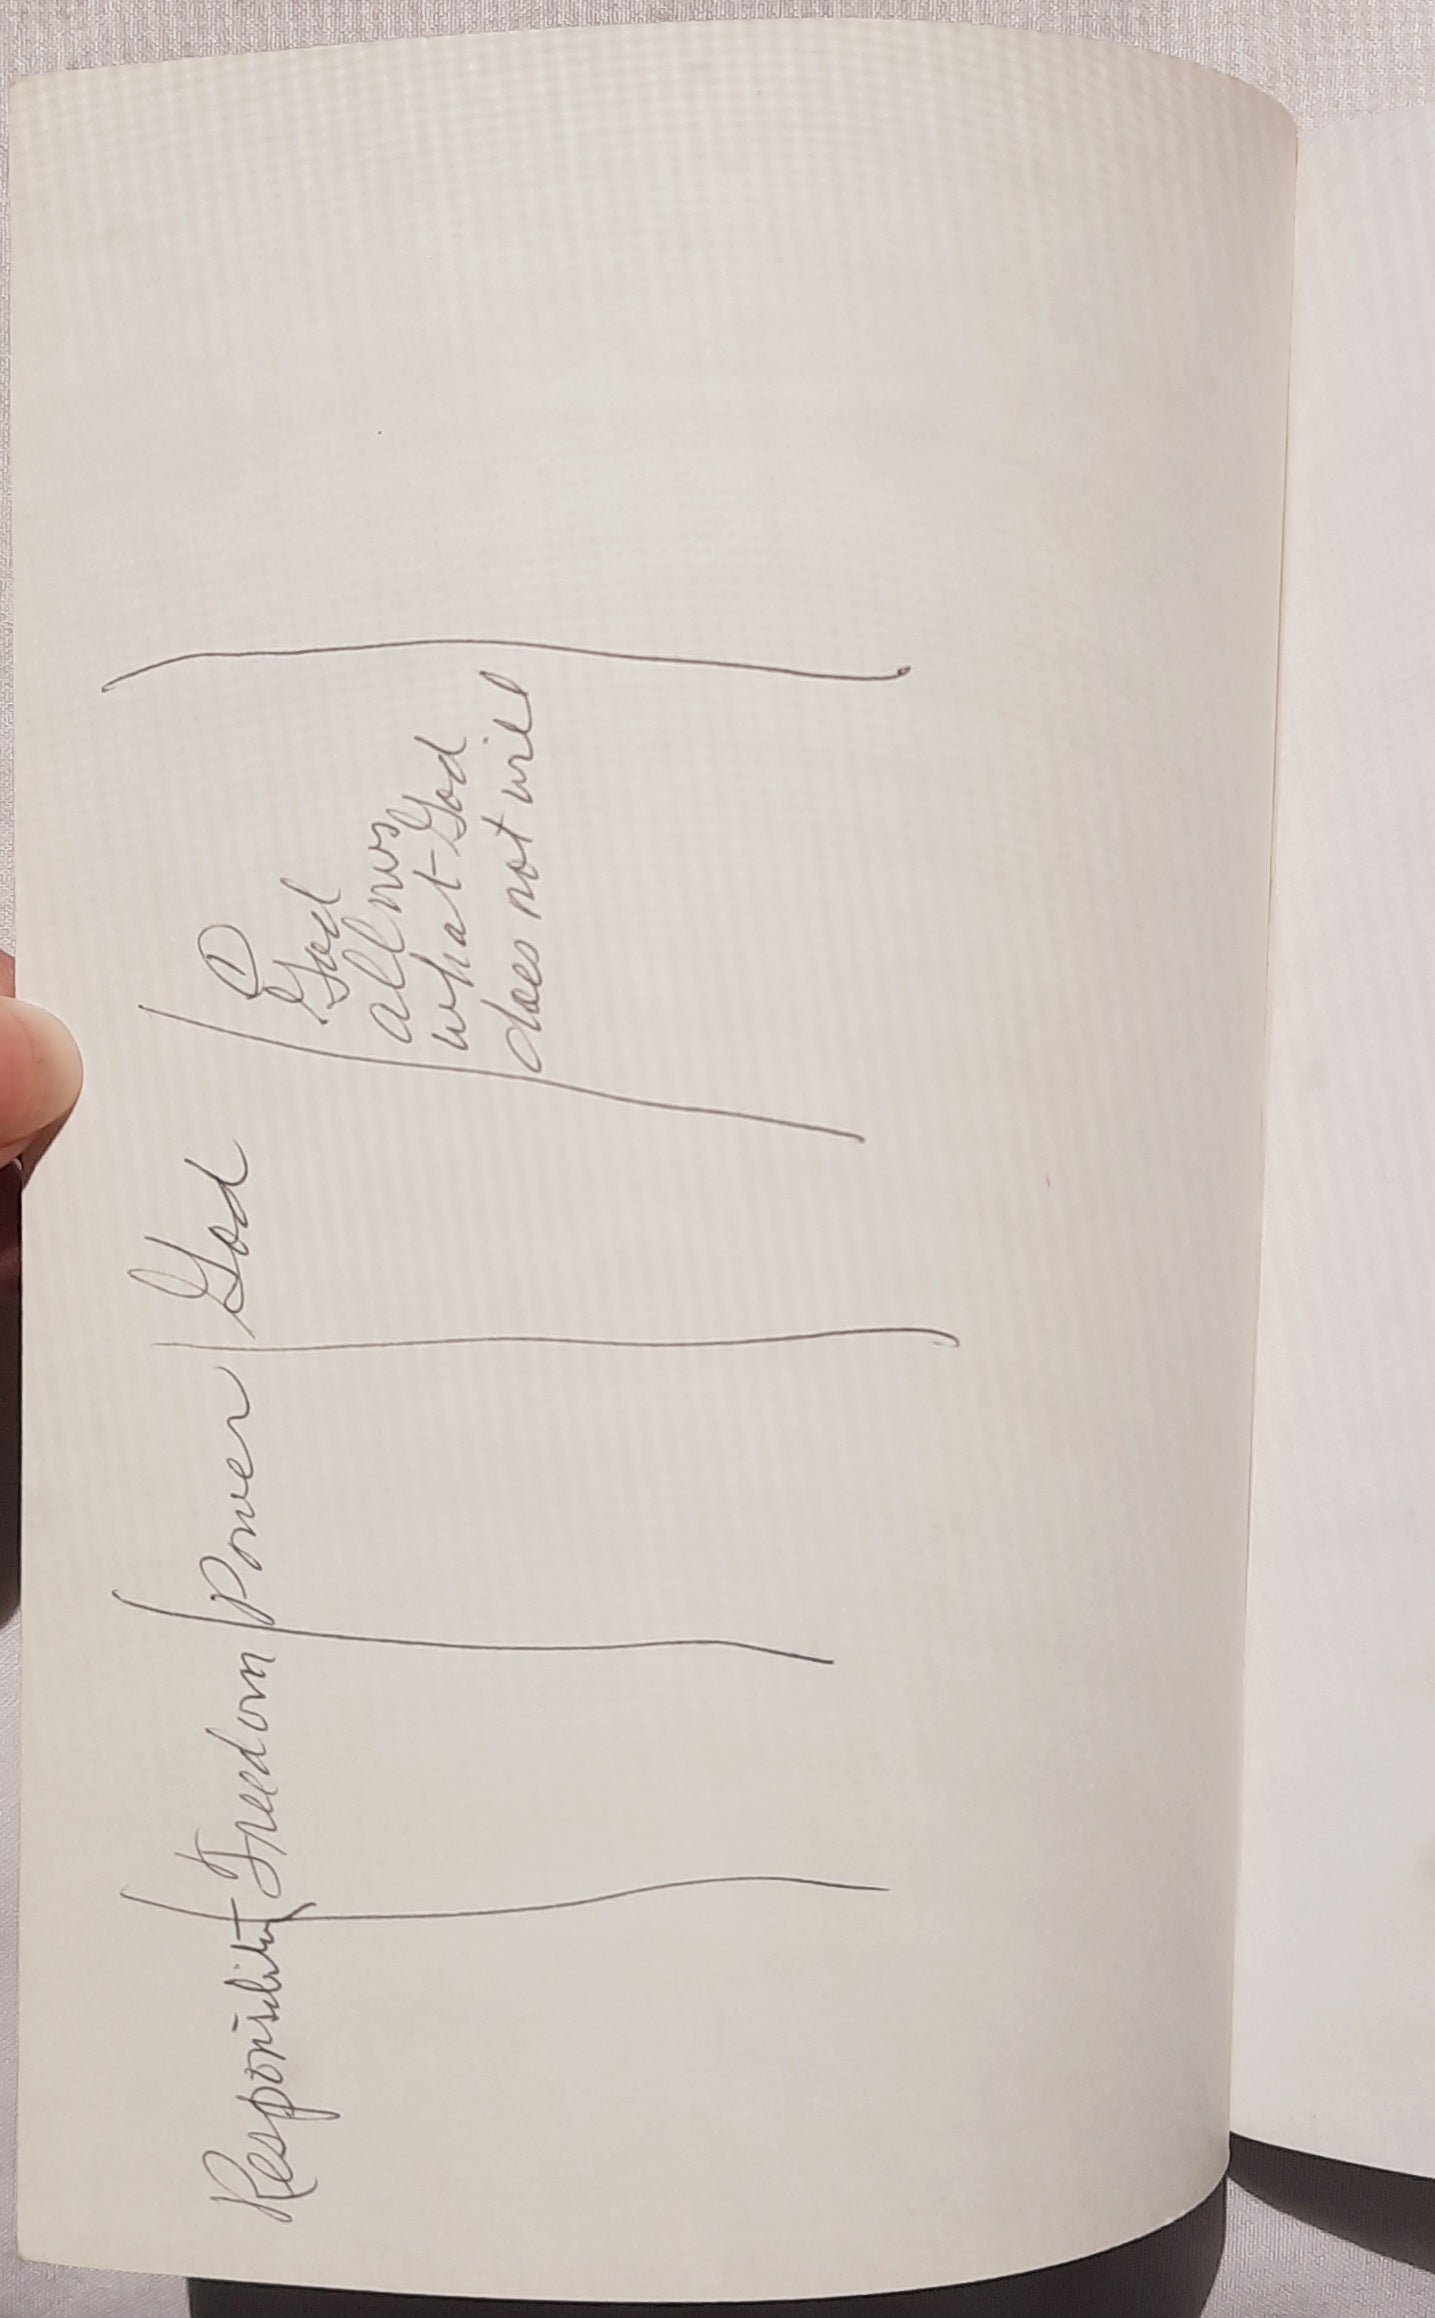 Responsibility Freedom Power God
①
God
allows
what God
does not will